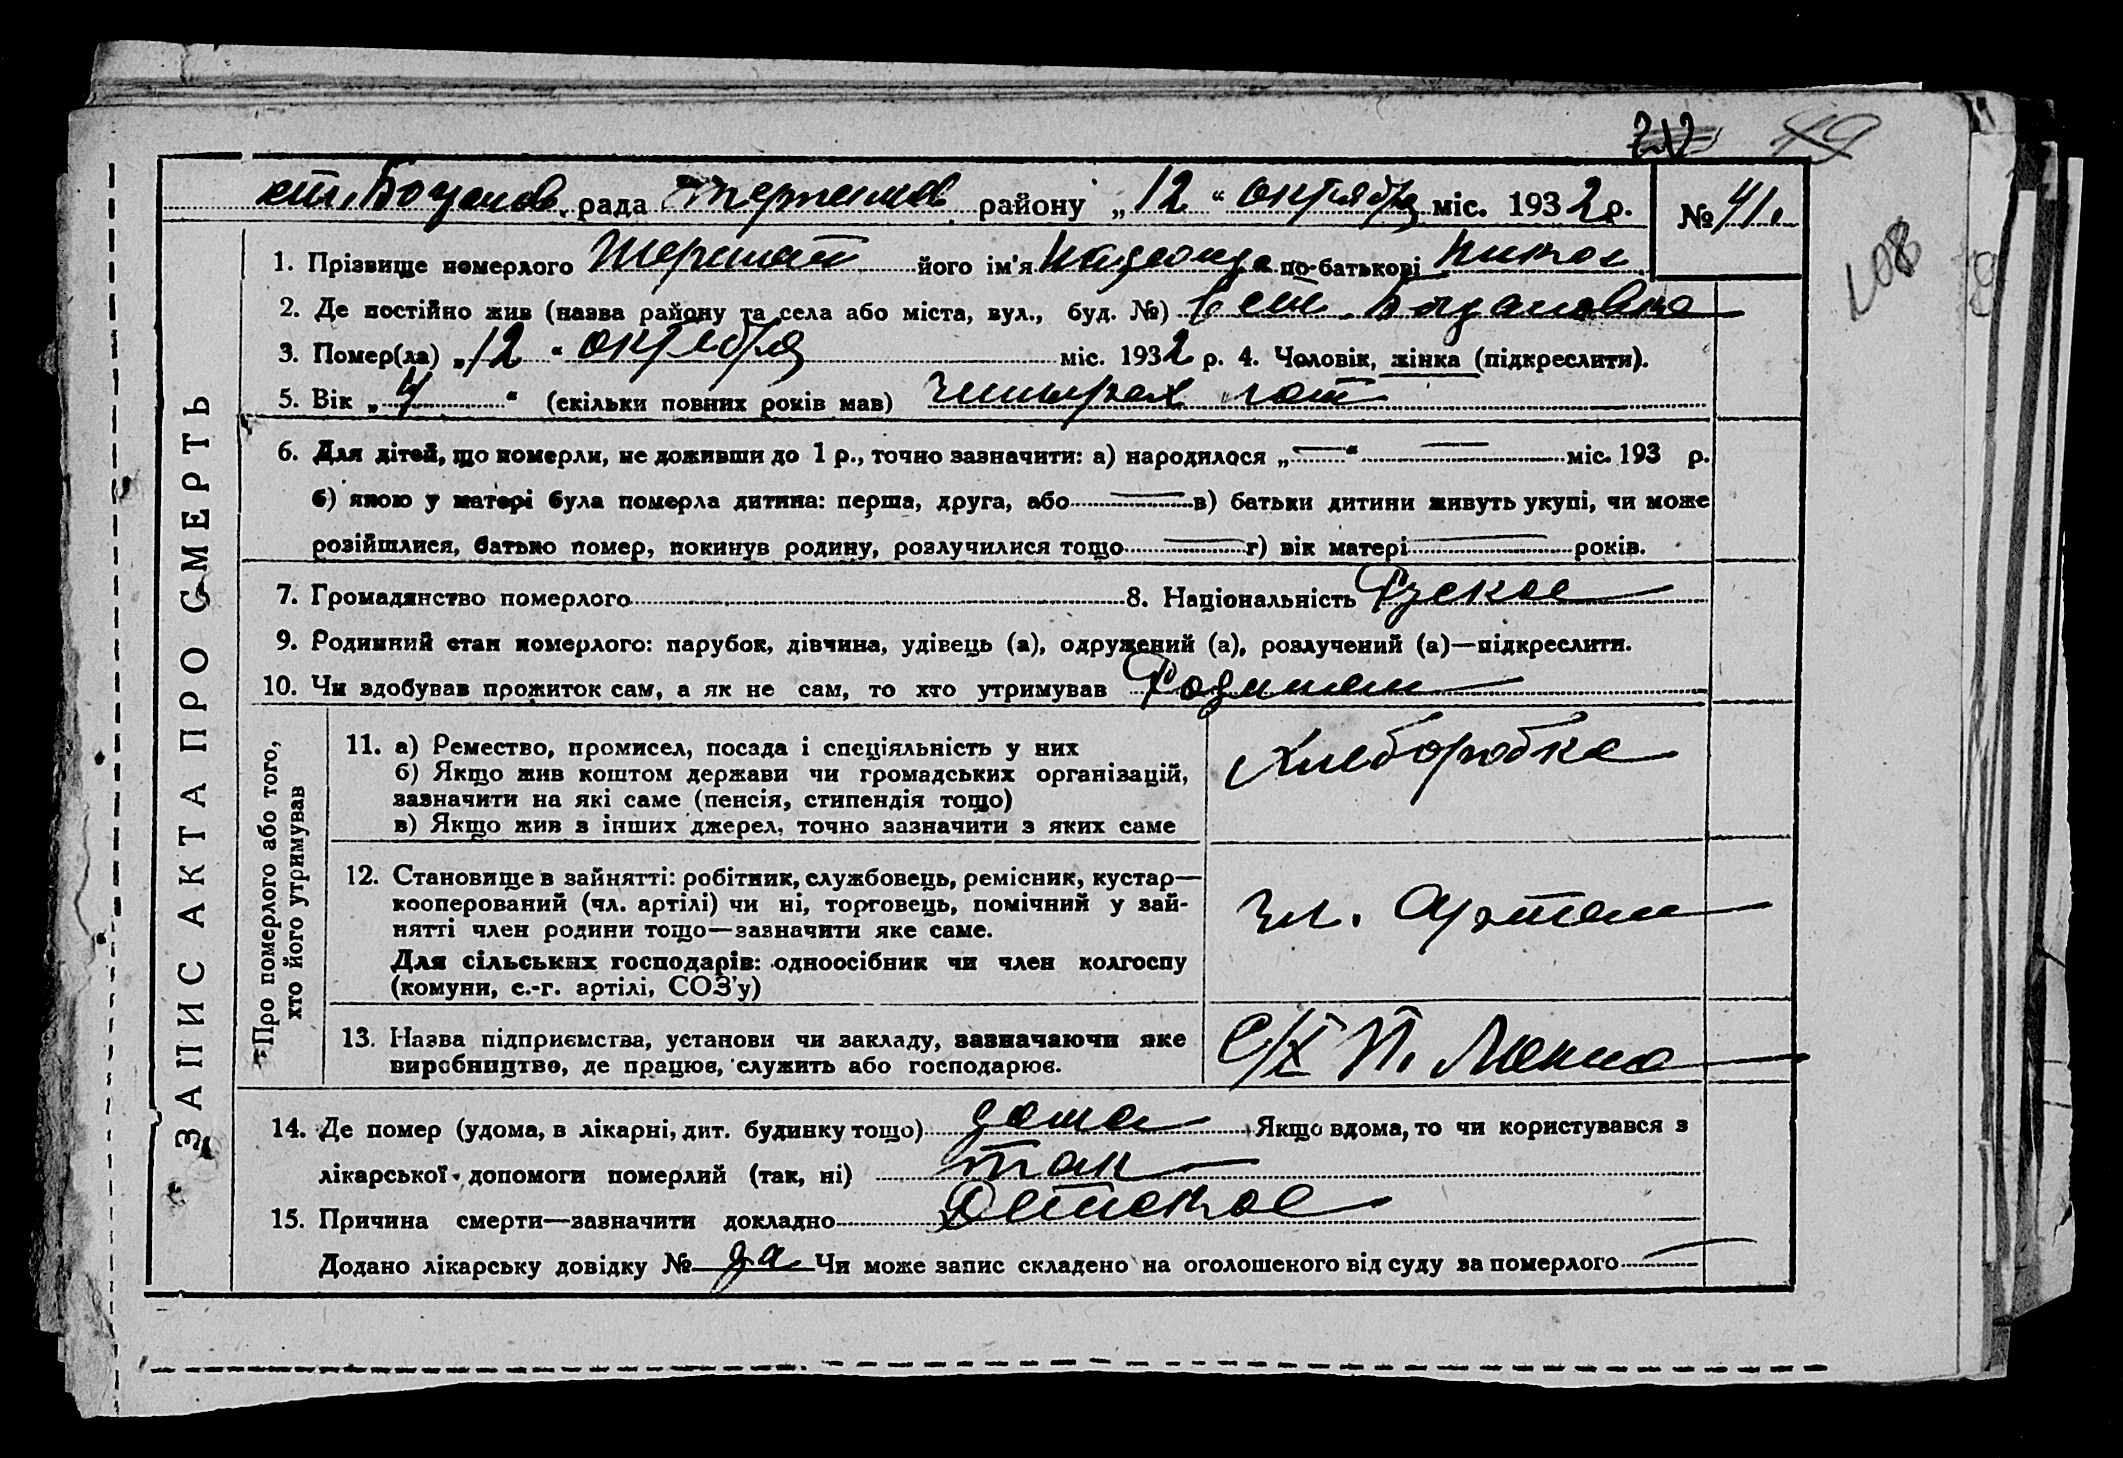 212 49
рада району „12“ октября міс. 1932 р. № 41.
108
ЗАПИС АКТА ПРО СМЕРТЬ
1. Прізвище померлого його ім'я по-батькові
2. Де постійно жив (назва району та села або міста, вул., буд. №)
3. Помер(ла) „12“ октября міс. 1932 р. 4. Чоловік, жінка (підкреслити).
5. Вік „4“ (скільки повних років мав)
6. Для дітей, що померли, не доживши до 1 р., точно зазначити: а) народилося „—“ — міс. 193 р.
б) якою у матері була померла дитина: перша, друга, або — в) батьки дитини живуть укупі, чи може
розійшлися, батько помер, покинув родину, розлучилися тощо — г) вік матері — років.
7. Громадянство померлого 8. Національність Руское
9. Родинний стан померлого: парубок, дівчина, удівець (а), одружений (а), розлучений (а)—підкреслити.
10. Чи здобував прожиток сам, а як не сам, то хто утримував
Про померлого або того,
хто його утримував
11. а) Ремество, промисел, посада і спеціяльність у них
б) Якщо жив коштом держави чи громадських організацій,
зазначити на які саме (пенсія, стипендія тощо)
в) Якщо жив з інших джерел, точно зазначити з яких саме
Хлеборобка
12. Становище в зайнятті: робітник, службовець, ремісник, кустар—
кооперований (чл. артілі) чи ні, торговець, помічний у зай-
нятті член родини тощо—зазначити яке саме.
Для сільських господарів: одноосібник чи член колгоспу
(комуни, с.-г. артілі, СОЗ'у)
чл. Артели
13. Назва підприємства, установи чи закладу, зазначаючи яке
виробництво, де працює, служить або господарює.
С/Х
14. Де помер (удома, в лікарні, дит. будинку тощо) дома Якщо вдома, то чи користувався з
лікарської допомоги померлий (так, ні) так
15. Причина смерти—зазначити докладно
Додано лікарську довідку № да Чи може запис складено на оголошеного від суду за померлого —